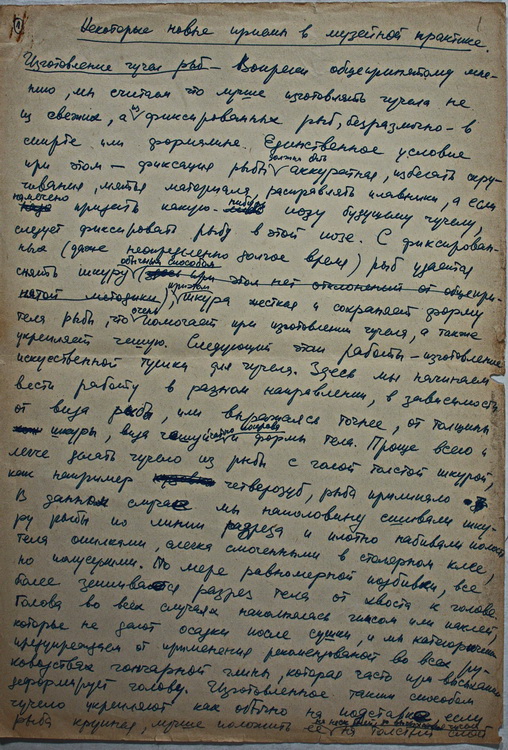 1
Некоторые новые приемы в музейной практике.
Изготовление чучел рыб – Вопреки общепринятому мне-
нию, мы считаем что лучше изготовлять чучела не
из свежих, а из фиксированных рыб, безразлично – в
спирте или формалине. Единственное условие
при этом – фиксация рыбы должна быть аккуратная, избегать скру-
чивания, мятья материала, расправлять плавники, а если
намечено придать какую-нибудь позу будущему чучелу,
следует фиксировать рыбу в этой позе. С фиксирован-
ных (даже неопределенно долгое время) рыб удается
снять шкуру обычным способом (здесь при этом нет отклонений от общепри-
нятой методики), причем шкура жесткая и сохраняет форму
тела рыбы, что очень помогает при изготовлении чучела, а также
укрепляет чешую. Следующий этап работы – изготовление
искусственной тушки для чучела. Здесь мы начинаем
вести работу в разном направлении, в зависимости
от вида рыбы, или выражаясь точнее, от толщины
шкуры, вида чешуи и формы тела. Проще всего и
легче делать чучело из рыбы с голой толстой шкурой,
как например четверозуб, рыба прилипало
В данном случае мы наполовину сшивали шку-
ру рыбы по линии разреза и плотно набивали полость
тела опилками, слегка смоченными в столярном клее,
но полусухими. По мере равномерной подбивки, все
более зашивается разрез тела от хвоста к голове.
Голова во всех случаях наполнялась гипсом или паклей,
которые не дают осадки после сушки, и мы категорически
предупреждаем от применения рекомендованной во всех ру-
ководствах гончарной глины, которая часто при высыхании
деформирует голову. Изготовленное таким способом
чучело укрепляют как обычно на подставке если
рыба крупная, лучше положить ее на толстый слой